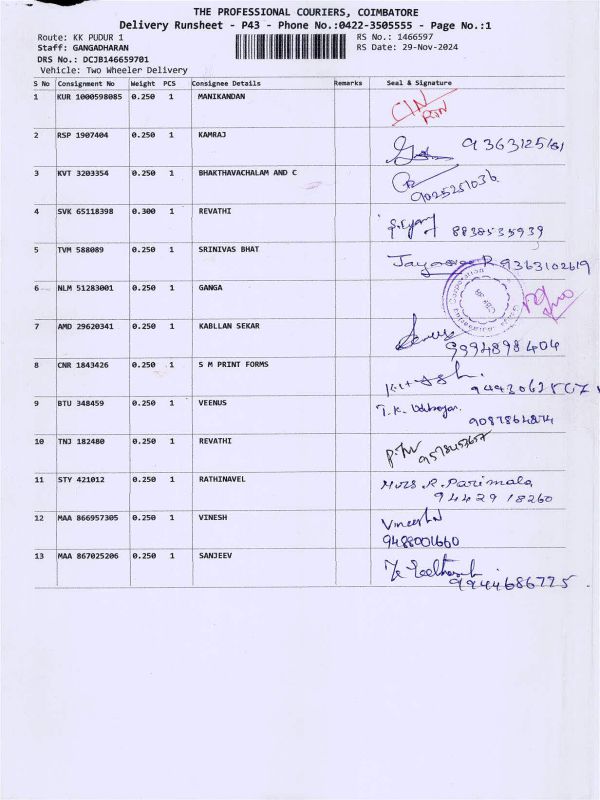 THE PROFESSIONAL COURIERS, COIMBATORE
Delivery Runsheet - P43 - Phone No.:0422-3505555 - Page No.:1
Route: KK PUDUR 1 RS No.: 1466597
Staff: GANGADHARAN RS Date: 29-Nov-2024
DRS No.: DCJB146659701
Vehicle: Two Wheeler Delivery
S No Consignment No Weight PCS Consignee Details Remarks Seal & Signature
1 KUR 1000598085 0.250 1 MANIKANDAN
2 RSP 1907404 0.250 1 KAMRAJ
3 KVT 3203354 0.250 1 BHAKTHAVACHALAM AND C
9025251036
4 SVK 65118398 0.300 1 REVATHI
8838535939
5 TVM 588089 0.250 1 SRINIVAS BHAT 9363102619
6 NLM 51283001 0.250 1 GANGA
7 AMD 29620341 0.250 1 KABLLAN SEKAR
9994898404
8 CNR 1843426 0.250 1 S M PRINT FORMS
9 BTU 348459 0.250 1 VEENUS T.K.
9087864874
10 TNJ 182480 0.250 1 REVATHI
11 STY 421012 0.250 1 RATHINAVEL R. Parimala
94429 18260
12 MAA 866957305 0.250 1 VINESH
9488001660
13 MAA 867025206 0.250 1 SANJEEV
9944686775